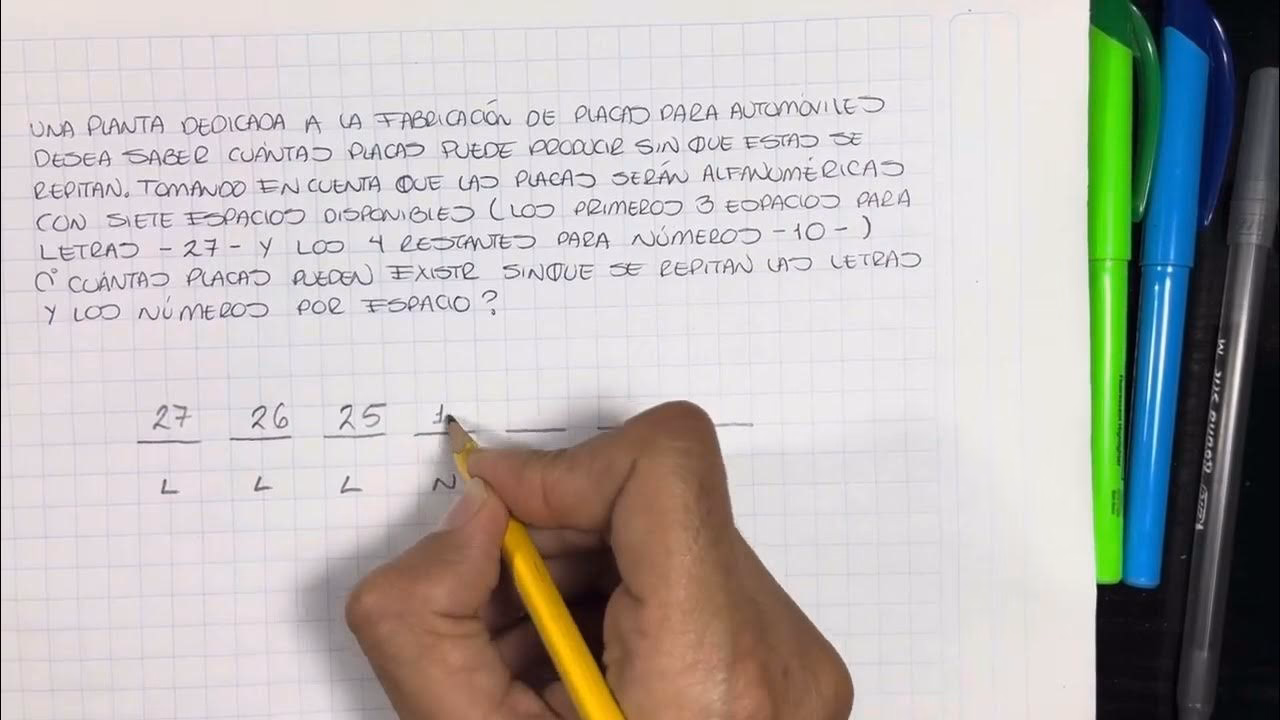 UNA PLANTA DEDICADA A LA FABRICACIÓN DE PLACAS PARA AUTOMÓVILES
DESEA SABER CUÁNTAS PLACAS PUEDE PRODUCIR SIN QUE ESTAS SE
REPITAN. TOMANDO EN CUENTA QUE LAS PLACAS SERÁN ALFANUMÉRICAS
CON SIETE ESPACIOS DISPONIBLES (LOS PRIMEROS 3 ESPACIOS PARA
LETRAS - 27 - Y LOS 4 RESTANTES PARA NÚMEROS - 10 - )
¿ CUÁNTAS PLACAS PUEDEN EXISTIR SIN QUE SE REPITAN LAS LETRAS
Y LOS NÚMEROS POR ESPACIO ?
27 26 25 1
L L L N
Round Stic M
BIC